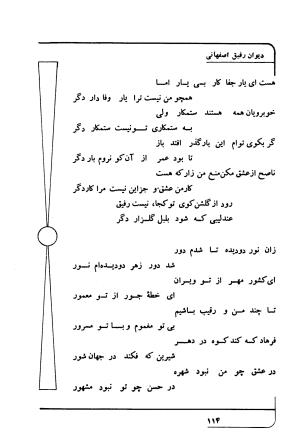 دیوان رفیق اصفهانی
هست ای یار جفا کار بسی یار اما
همچو من نیست ترا یار وفا دار دگر
خوبرویان همه هستند ستمکار ولی
به ستمکاری تو نیست ستمکار دگر
گر بکوی توام این بار گذر افتد باز
تا بود عمر از آن کو نروم بار دگر
ناصح از عشق مکن منع من زار که هست
کار من عشق و جز این نیست مرا کار دگر
رود از گلشن کوی تو کجا، نیست رفیق
عندلیبی که شود بلبل گلزار دگر
زان نور دو دیده تا شدم دور
شد دور زهر دو دیده‌ام نور
ای کشور مهر از تو ویران
ای خطهٔ جور از تو معمور
تا چند من و رقیب باشیم
بی تو مغموم و با تو مسرور
فرهاد که کند کوه در دهر
شیرین که فکند در جهان شور
در عشق چو من نبود شهره
در حسن چو تو نبود مشهور
۱۱۴